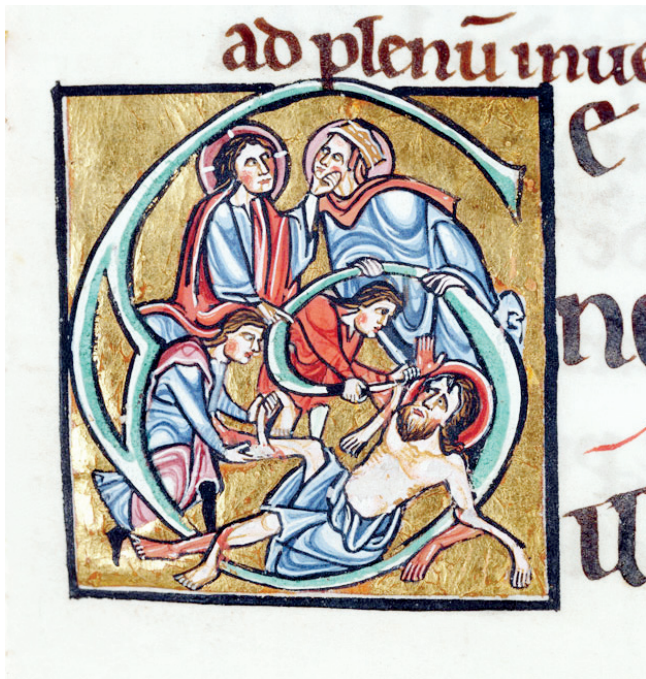 ad plenū inue
e
n
u